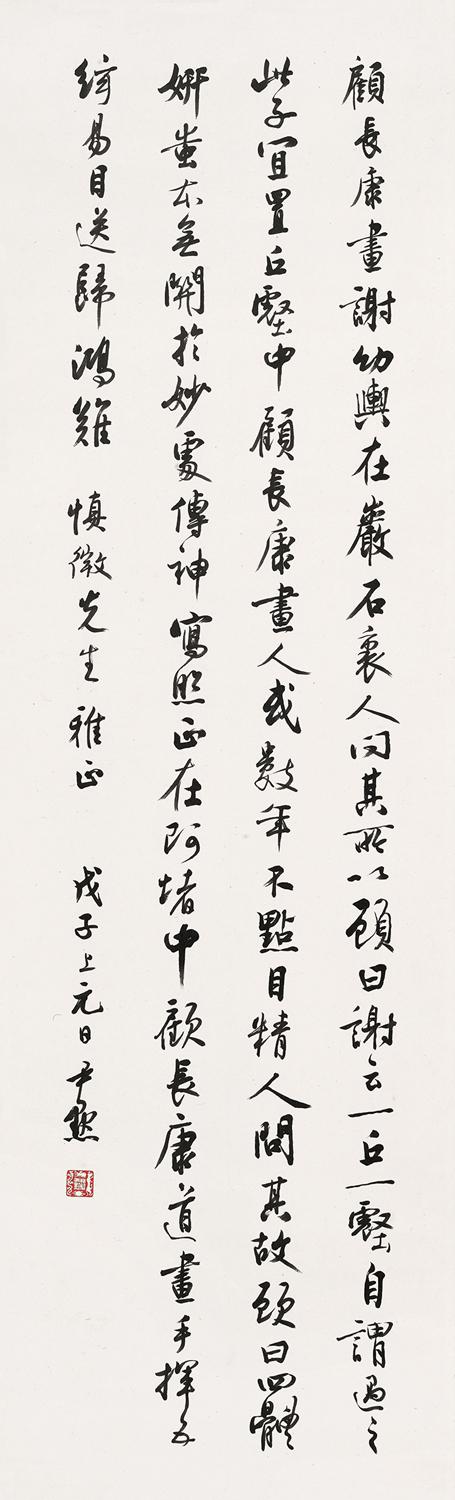 顧長康畫謝幼輿在巖石裏人问其所以顧曰謝云一丘一壑自謂過之
此子宜置丘壑中顧長康畫人或數年不點目精人問其故顧曰四體
妍蚩本無關於妙處傳神寫照正在阿堵中顧長康道畫手揮五
絃易目送歸鴻難 慎徵先生雅正 戊子上元日尹默